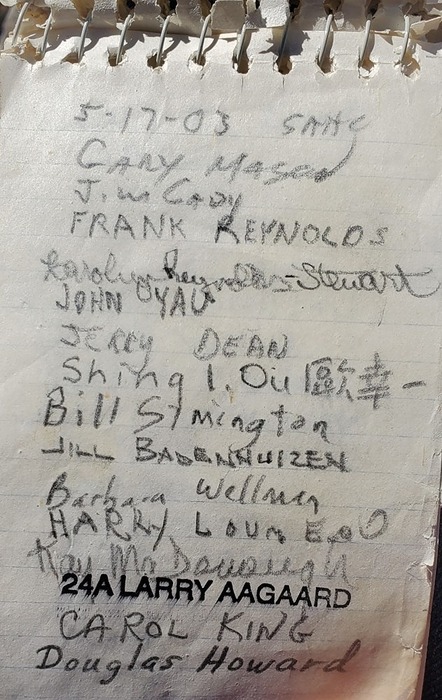 5-17-03 SMHC
GARY MASON
J.W. CADY
FRANK REYNOLDS
Karolyn Reynolds-Stewart
JOHN YAU
JERRY DEAN
Shing I. Ou 歐幸一
Bill Simington
JILL BADENHUIZEN
Barbara Wellman
HARRY
Kay McDonough
24A LARRY AAGAARD
CAROL KING
Douglas Howard